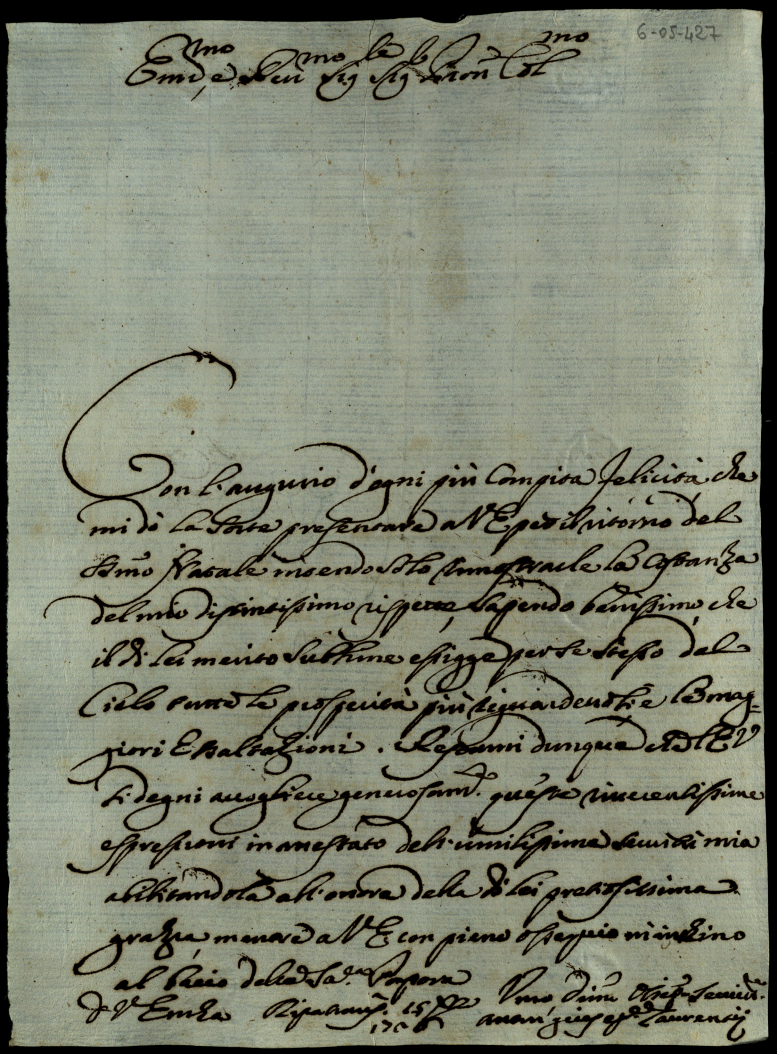 6-05-427
Em.mo e Rev.mo Sig.re Sig.re Pron Col.mo
Con l'augurio d'ogni più compita felicità, che
mi dà la sorte presentare a V E per il ritorno del
S.mo Natale intendo solo rimostrarle la costanza
del mio distintissimo rispetto, sapendo benissimo che
il di lei merito sublime essigge per se stesso dal
Cielo tutte le prosperità più riguardevoli e le mag=
giori Esaltazioni. Restami dunque che l'E V
si degni accogliere generosam.te queste riverentissime
espressioni in attestato dell'umilissima servitù mia
abilitandola all'onore della di lei pretiosissima
grazia, mentre a V E con pieno ossequio m'inchino
al bacio della Sa. Porpora
D V Emza 15 Xbre
Umo Dmo Servit.e
de Laurentij